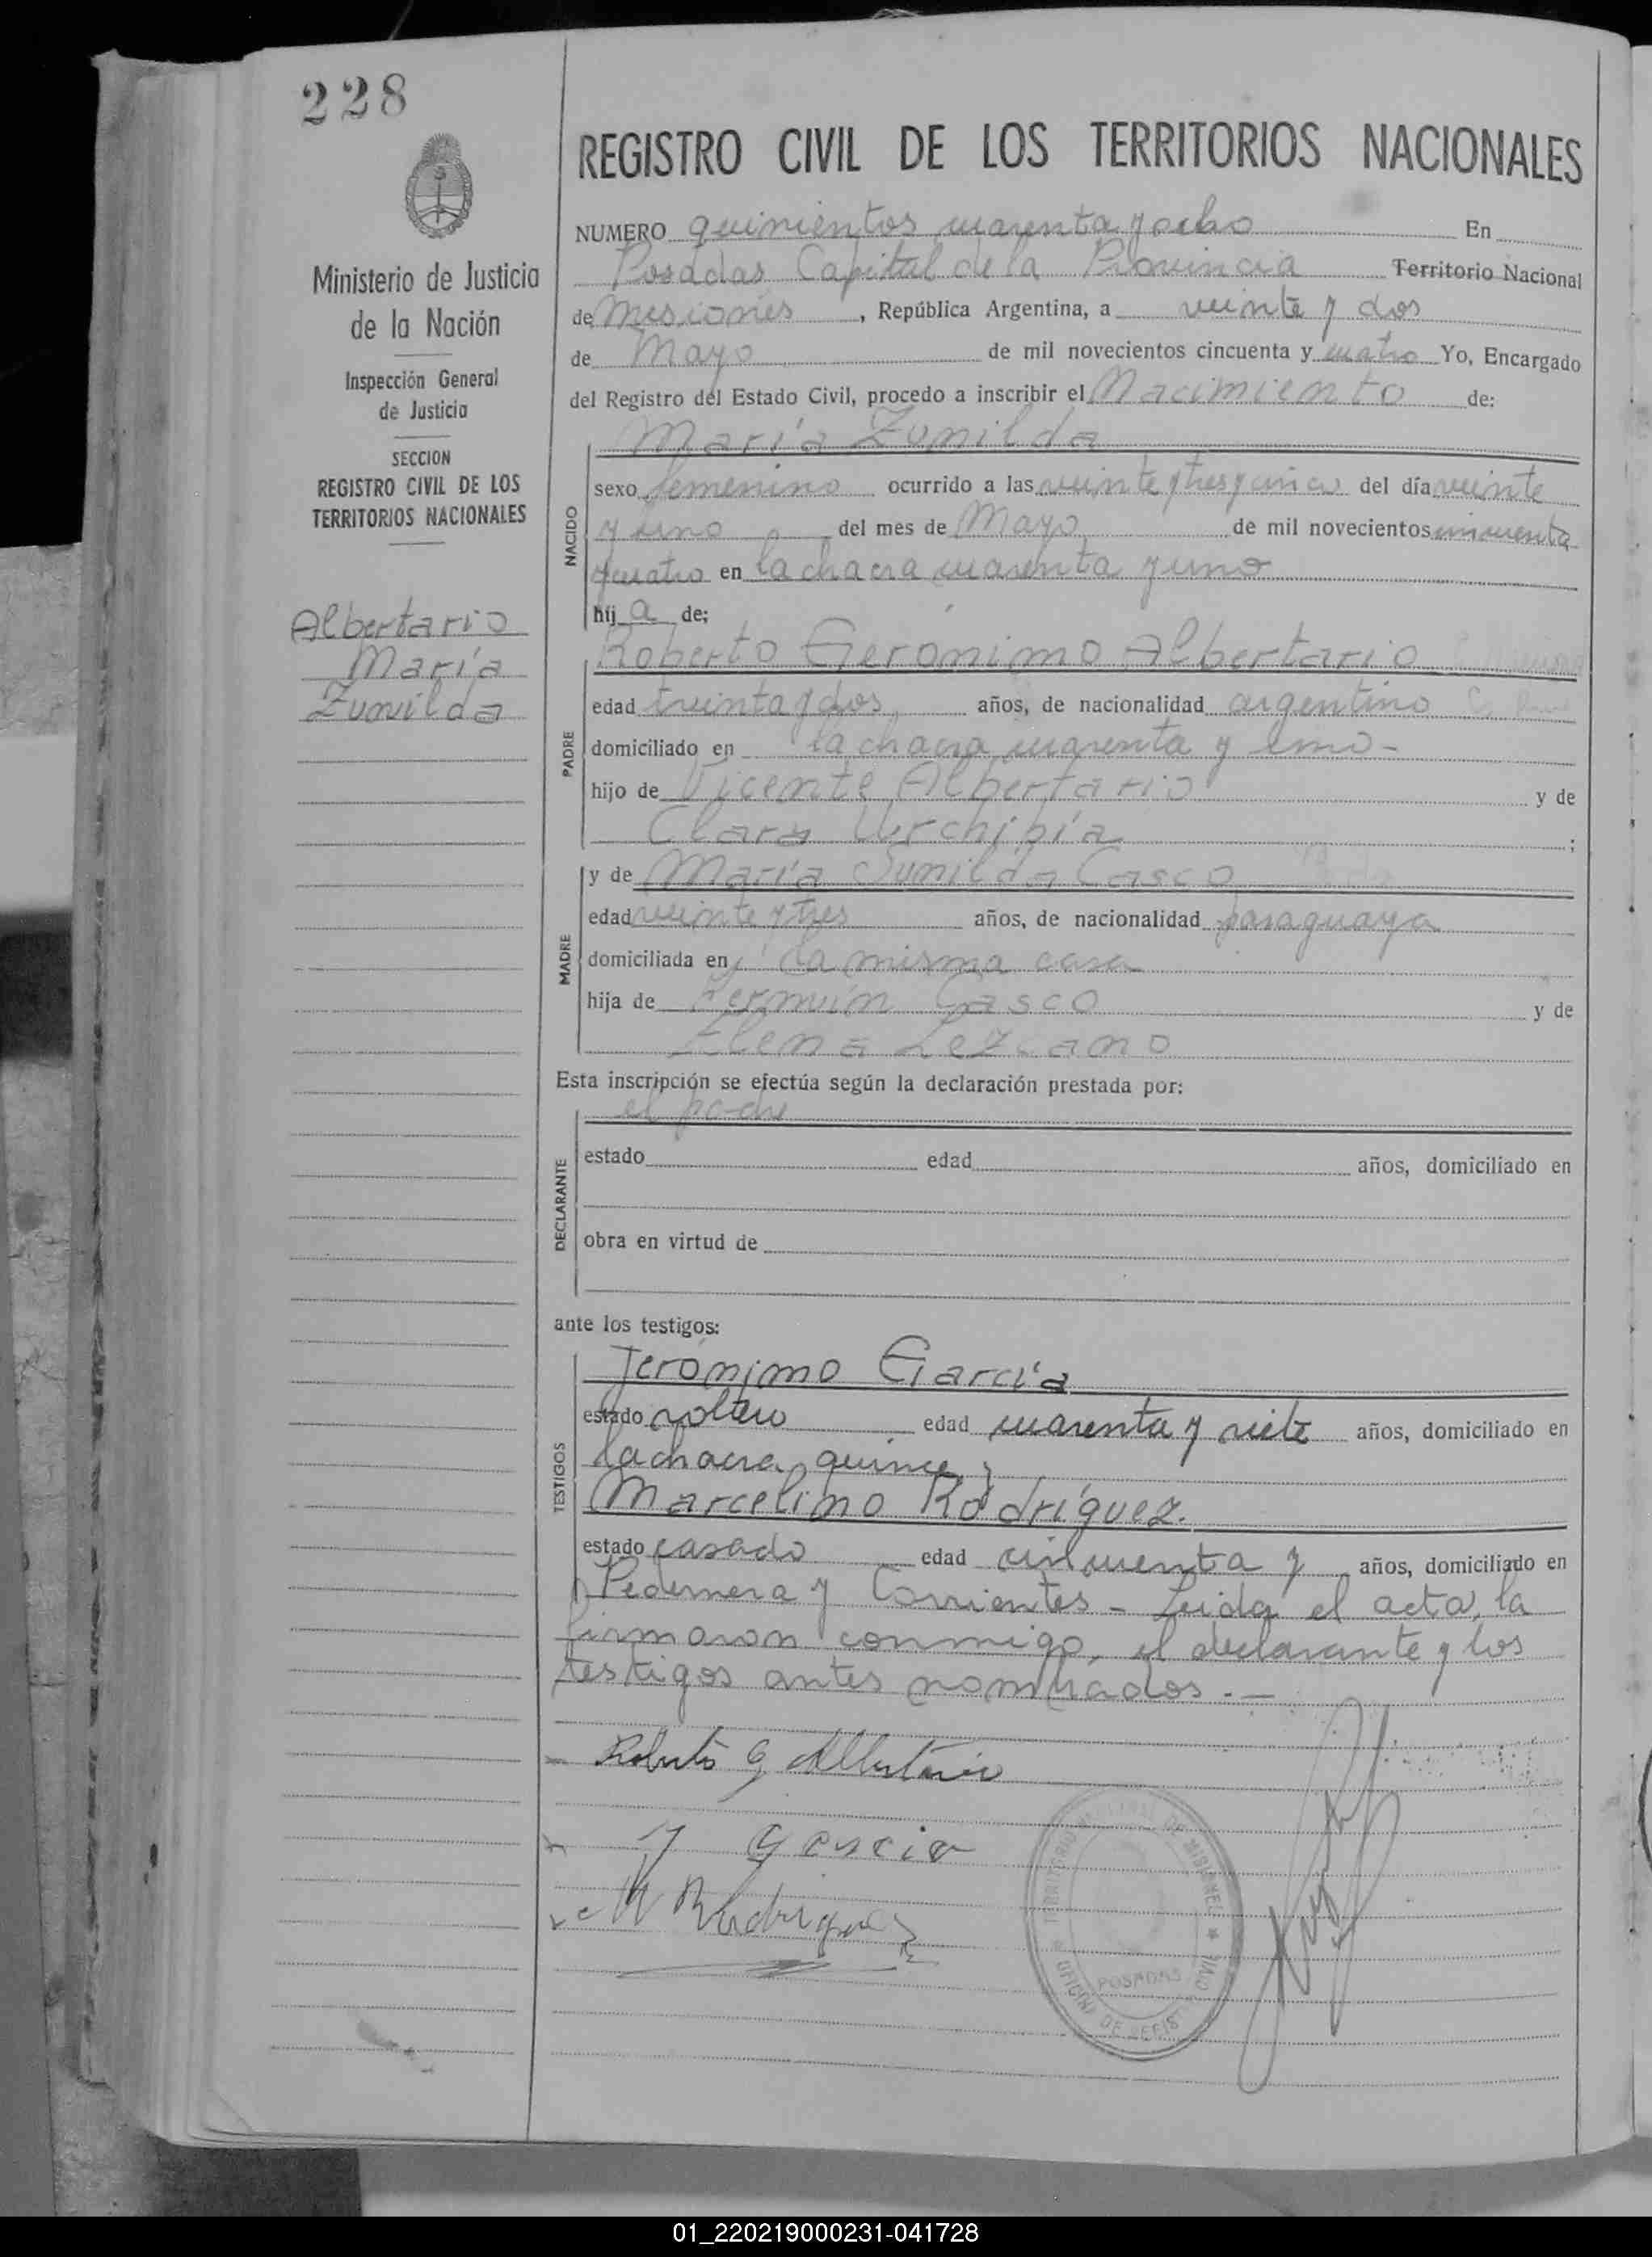 228
REGISTRO CIVIL DE LOS TERRITORIOS NACIONALES
Ministerio de Justicia
de la Nación
Inspección General
de Justicia
SECCION
REGISTRO CIVIL DE LOS
TERRITORIOS NACIONALES
Albertario
María
Zunilda
NUMERO quinientos cuarenta y ocho En
Posadas Capital de la Provincia Territorio Nacional
de Misiones, República Argentina, a veinte y dos
de Mayo de mil novecientos cincuenta y cuatro Yo, Encargado
del Registro del Estado Civil, procedo a inscribir el Nacimiento de:
NACIDO
María Zunilda
sexo femenino ocurrido a las veinte y tres y cinco del día veinte
y uno del mes de Mayo de mil novecientos cincuenta
y cuatro en la chacra cuarenta y uno
hij a de;
PADRE
Roberto Gerónimo Albertario
edad treinta y dos, años, de nacionalidad argentino
domiciliado en la chacra cuarenta y uno-
hijo de Vicente Albertario y de
Clara ;
MADRE
y de María Sunilda Casco
edad veinte y tres años, de nacionalidad paraguaya
domiciliada en la misma casa
hija de Casco y de
Elena Lezcano
Esta inscripción se efectúa según la declaración prestada por:
DECLARANTE
el padre
estado edad años, domiciliado en
obra en virtud de
ante los testigos:
TESTIGOS
Jerónimo García
estado soltero edad cuarenta y siete años, domiciliado en
la chacra quince y
Marcelino Rodríguez.
estado casado edad cincuenta y años, domiciliado en
Pedernera y Corrientes - Leida el acta, la
firmaron conmigo, el declarante y los
testigos antes nombrados.-
Roberto G Albertario
J Garcia
M Rodriguez
TERRITORIO NACIONAL DE MISIONES
POSADAS
OFICINA DE REGISTRO CIVIL
01_220219000231-041728